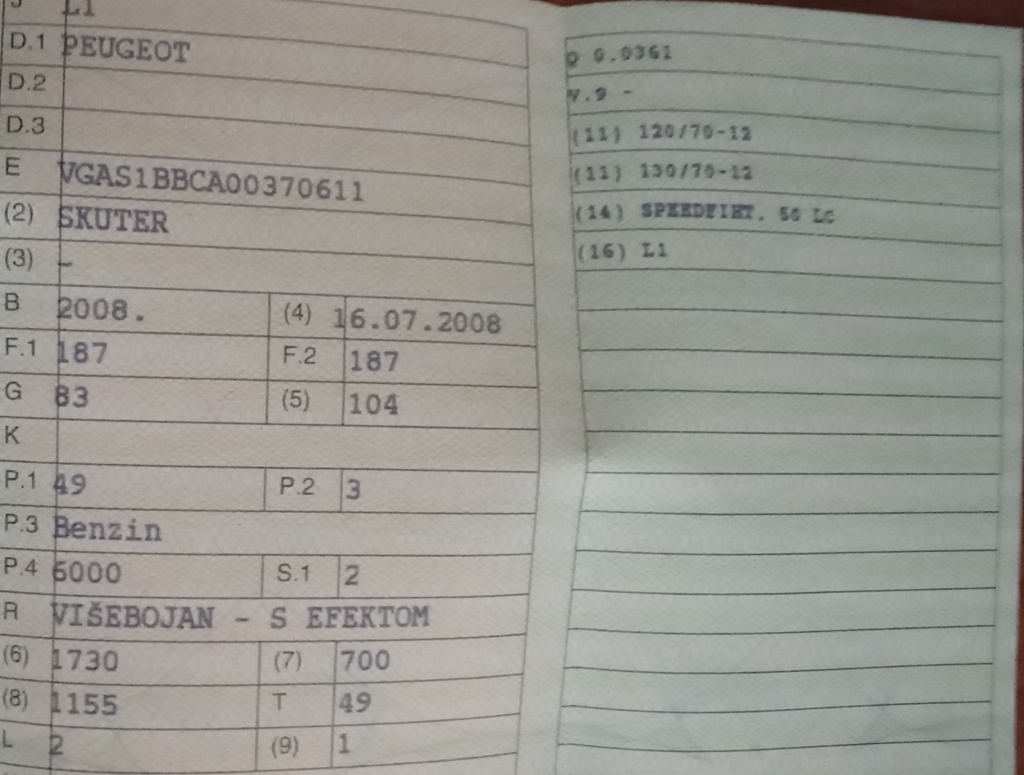 J L1
D.1 PEUGEOT
D.2
D.3
E VGAS1BBCA00370611
(2) SKUTER
(3) -
B 2008. (4) 16.07.2008
F.1 187 F.2 187
G 83 (5) 104
K
P.1 49 P.2 3
P.3 Benzin
P.4 6000 S.1 2
R VIŠEBOJAN - S EFEKTOM
(6) 1730 (7) 700
(8) 1155 T 49
L 2 (9) 1
Q 0.0361
V.9 -
(11) 120/70-12
(11) 130/70-12
(14) 50 LC
(16) L1